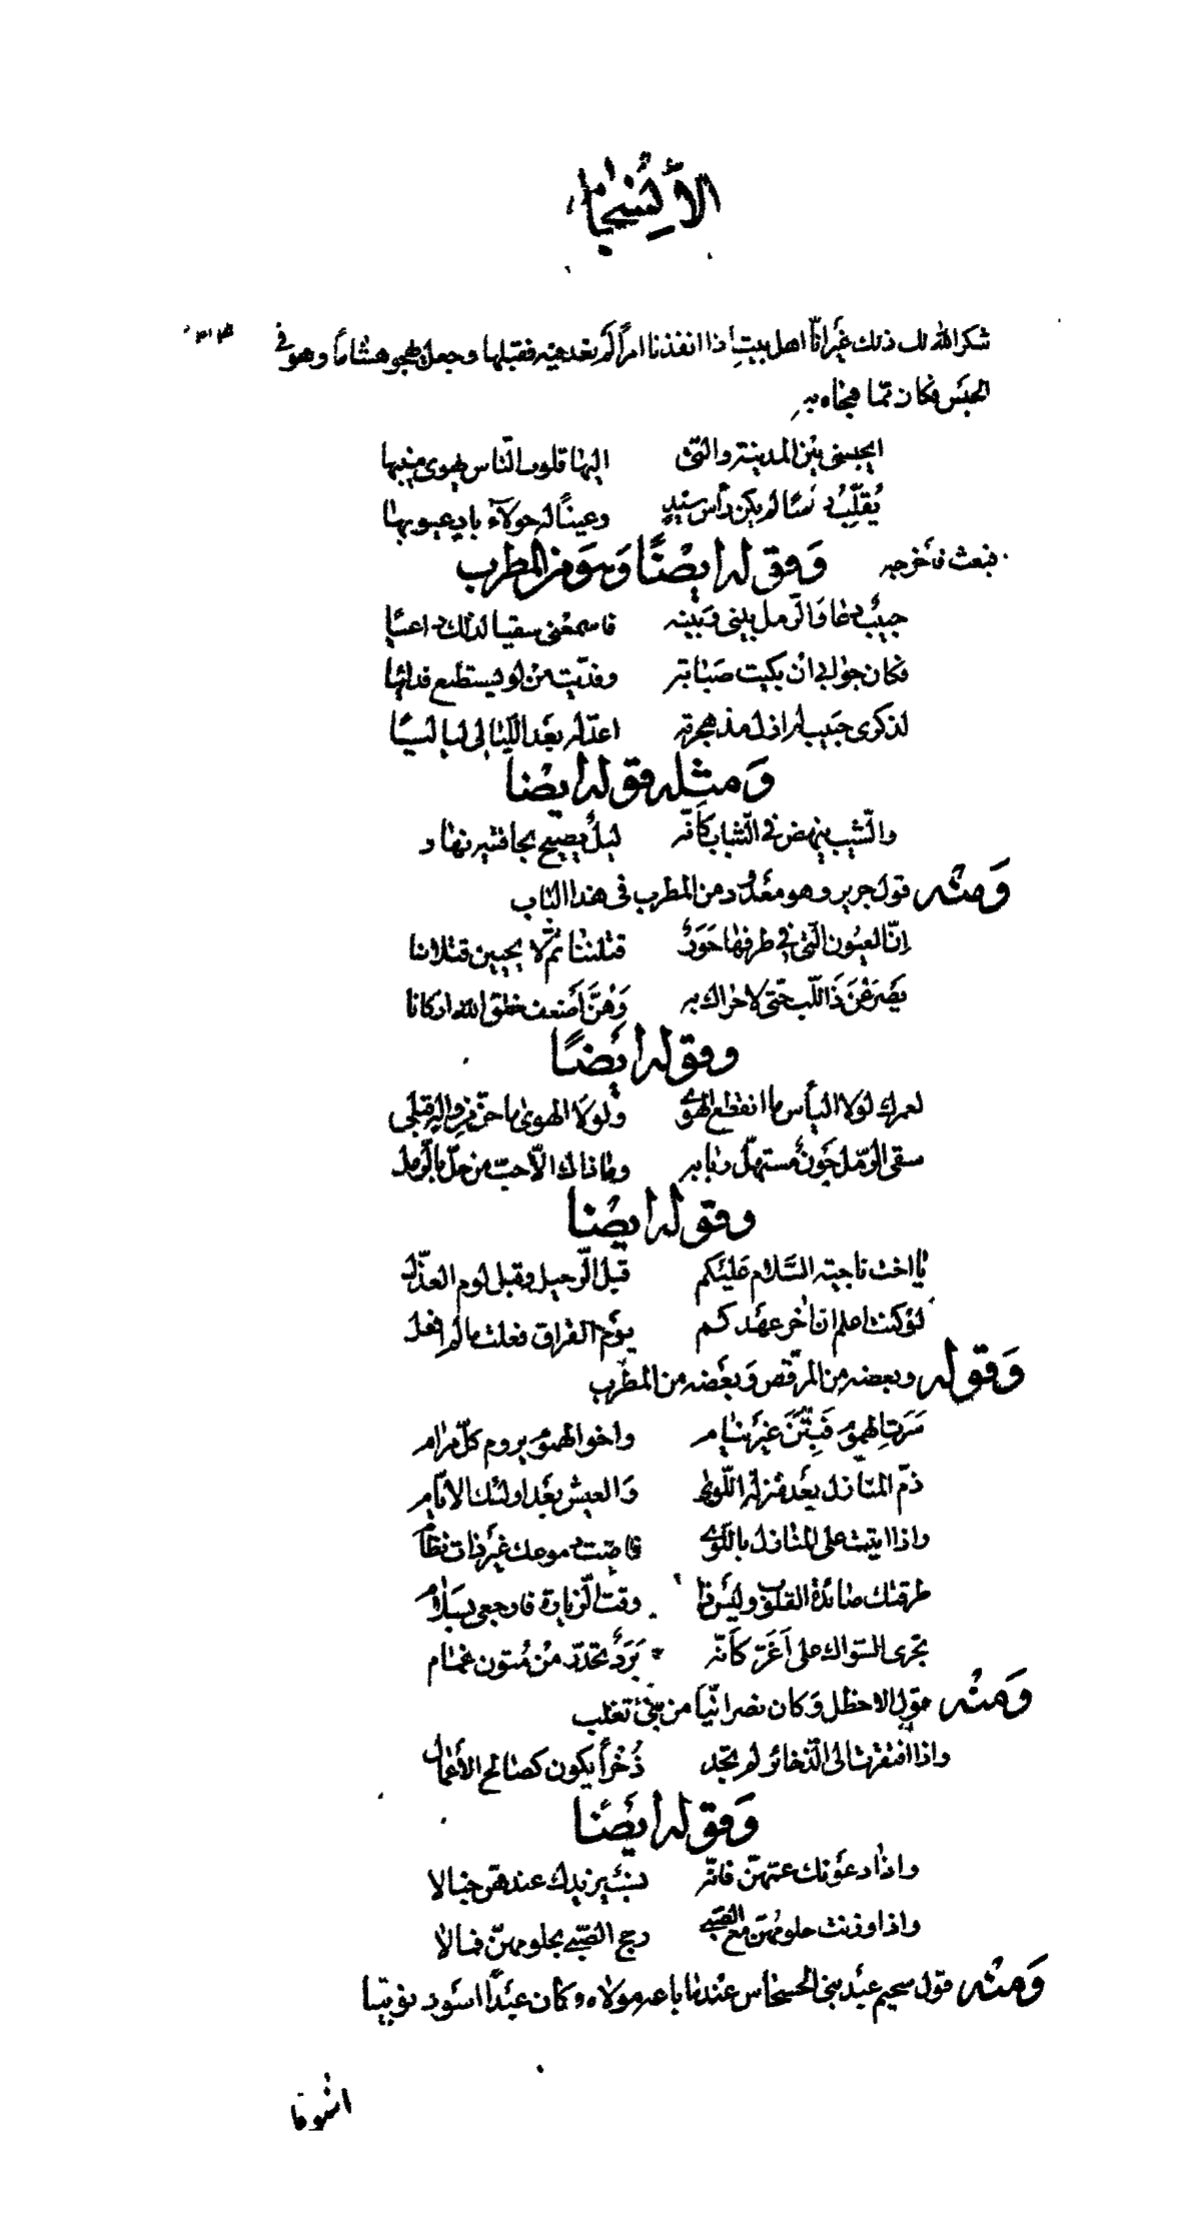 الانسجام
شكر الله لك ذلك غير انّا اهل بيت اذا انفذنا امراً لم نعد فيه فقبلها وجعل يهجو هشاماً وهو في
الحبس فكان ممّا هجاه به
ايحبسنى بين المدينة والتى اليها قلوب النّاس يهوى منيبها
يُقلّب رأسا لم يكن رأس سيّدٍ وعيناً له حولاء باد عيوبها
فبعث فأخرجه وقوله ايضًا وهو من المطرب
حبيبٌ دعا والرّمل بينى وبينه فاسمعنى سقيا لذلك داعيا
فكان جوابى ان بكيت صبابة وفدّيت من لو يستطيع فدانيا
لذكرى حبيب لم ازل مذ هجرته اعدّ له بعد الليالى لياليا
ومثله قوله ايضا
والشّيب ينهض فى الشّباب كأنّه ليلٌ يصيح بجانبيه نهار
ومنه قول جرير وهو معدود من المطرب فى هذا الباب
انّ العيون الّتى فى طرفها حَوَرٌ قتلننا ثمّ لا يحيين قتلانا
يصرعن ذا اللّب حتّى لا حراك به وهنّ أضعف خلق الله اركانا
وقوله ايضًا
لعمرك لولا اليأس ما انقطع الهوى ولولا الهوى ما حنّ من واله قبلى
سقى الرّمل جَونٌ مستهلّ ربابه وما ذاك الّا حبّ من حلّ بالرّمل
وقوله ايضا
يا اخت ناجية السّلام عليكم قبل الرّحيل وقبل لوم العذّل
لو كنت اعلم ان آخر عهدكم يوم الفراق فعلت ما لم افعل
وقوله وبعضه من المرقص وبعضه من المطرب
سَرَتِ الهموم فبتن غير نيام واخو الهموم يروم كلّ مرام
ذمّ المنازل بعد منزلة اللّوى والعيش بعد اولئك الايّام
واذا اتيت على المنازل باللّوى فاضت دموعك غير ذات نظام
طرقتك صائدة القلوب وليس ذا وقت الزيارة فارجعى بسلام
تجرى السّواك على أغرّ كأنّه بَرَدٌ تحدّر من متون غمام
ومنه قول الاخطل وكان نصرانيّا من بنى تغلب
واذا افتقرت الى الذّخائر لم تجد ذُخراً يكون كصالح الأعمال
وقوله ايضا
واذا دعونك عمّهنّ فانّه نسبٌ يزيدك عندهنّ خبالا
واذا وزنت حلومهنّ مع الصّبى رجح الصّبى بحلومهنّ فمالا
ومنه قول سحيم عبد بنى الحسحاس عندما باعه مولاه وكان عبداً اسود نوبيّا
اشوقا